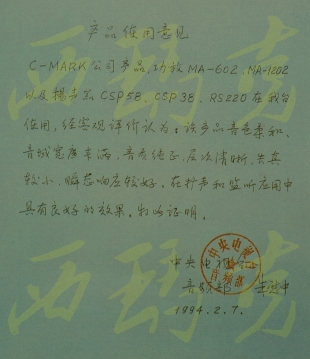 产品使用意见
C-MARK公司产品,功放MA-602、MA-1202
以及扬声器CSP58、CSP38、RS220在我台
使用,经客观评价认为:该产品音色柔和、
音域宽厚丰满、音质纯正、层次清晰、失真
较小、瞬态响应较好。在扩声和监听应用中
具有良好的效果。特此证明。
中央电视台
音频部
1994.2.7.
西玛克
西玛克